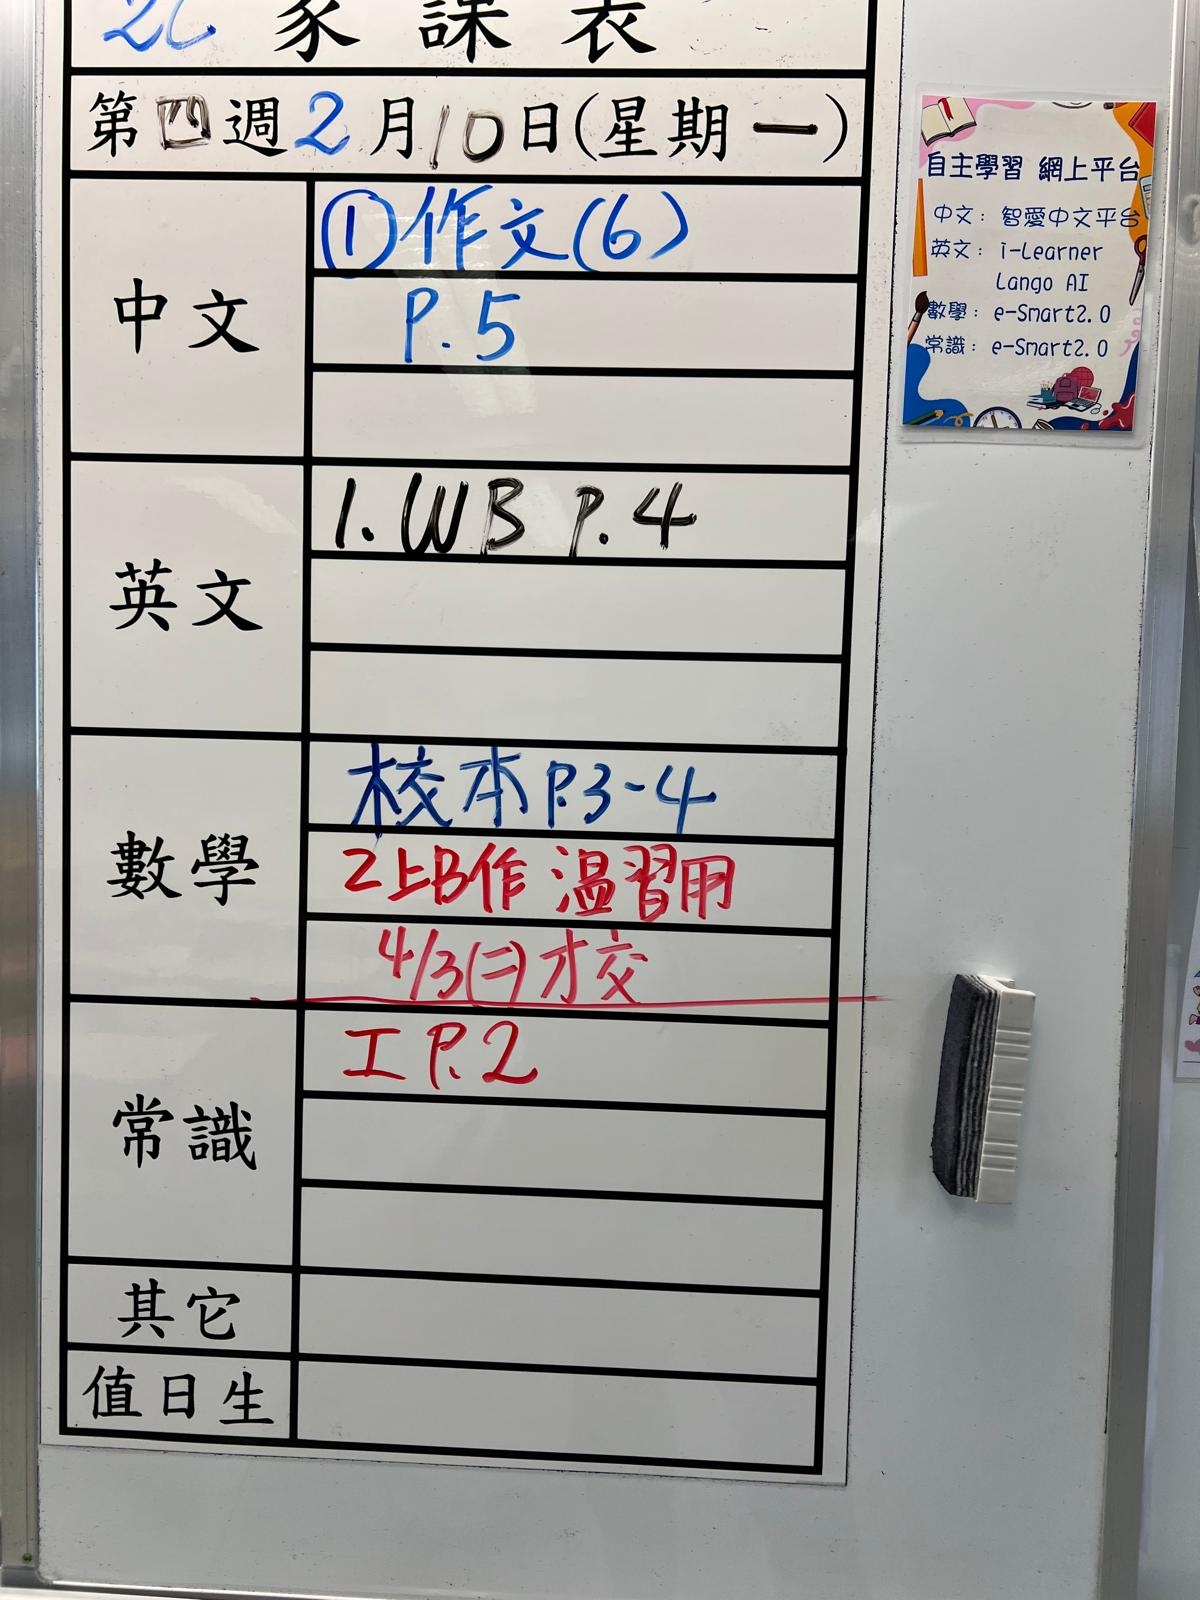 2C 家課表
第四週2月10日(星期一)
中文
①作文(6)
P.5
英文
1. WB P.4
數學
校本P.3-4
2上B作 温習用
4/3(二)才交
常識
工 P.2
其它
值日生
自主學習 網上平台
中文：智愛中文平台
英文：i-Learner
Lango AI
數學：e-Smart2.0
常識：e-Smart2.0